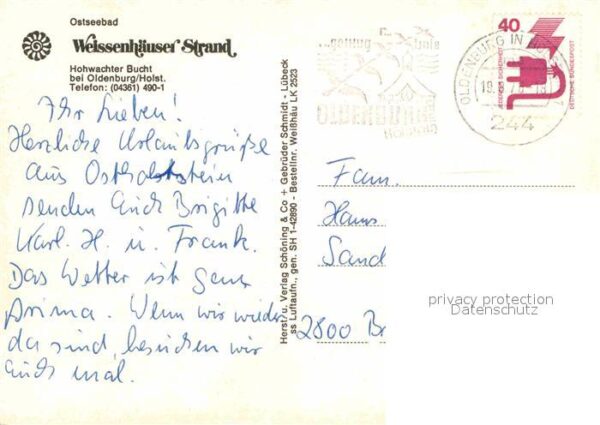 Ostseebad
Weissenhäuser Strand
Hohwachter Bucht
bei Oldenburg/Holst.
Telefon: (04361) 490-1
Ihr Lieben!
Herzliche Urlaubsgrüße
aus Ostholstein
senden Euch Brigitte
Karl. H. u. Frank.
Das Wetter ist ganz
prima. Wenn wir wieder
da sind, besuchen wir
Euch mal.
Herst. u. Verlag Schöning & Co + Gebrüder Schmidt - Lübeck
ss Luftaufn., gen. SH 1-42890 - Bestellnr. Weißhäu LK 2523
OLDENBURG IN
19.
244
40
JEDERZEIT SICHERHEIT
DEUTSCHE BUNDESPOST
Fam.
Hans
Sand
2800 Br
privacy protection
Datenschutz